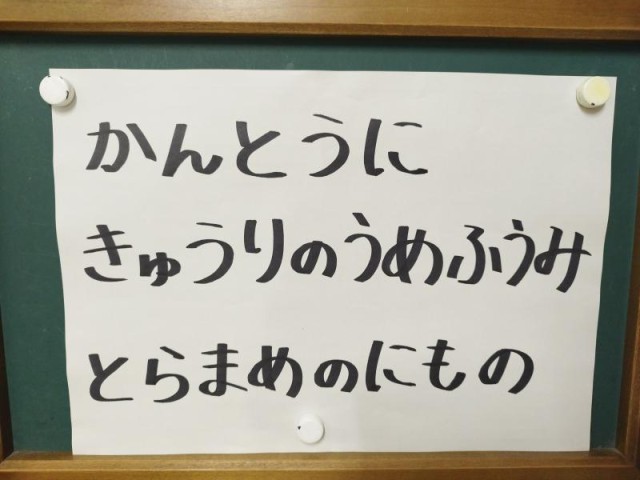 かんとうに
きゅうりのうめふうみ
とらまめのにもの